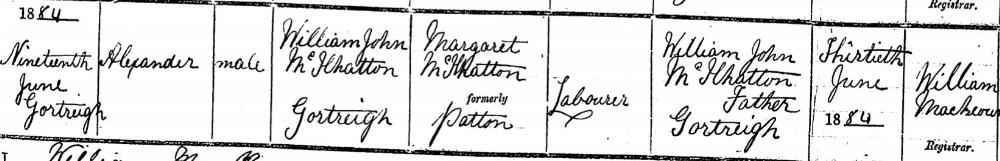 Registrar.
1884
Nineteenth
June
Gortreigh
Alexander
male
William John
McIlhatton
Gortreigh
Margaret
McIlhatton
formerly
Patton
Labourer
William John
McIlhatton
Father
Gortreigh
Thirtieth
June
1884
William
Registrar.
William